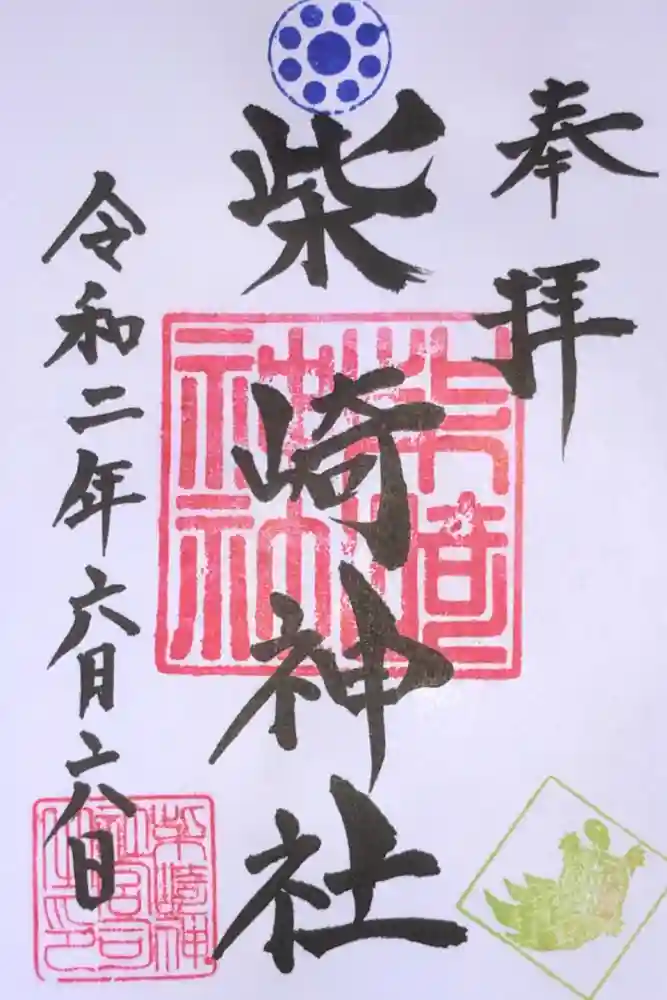 奉拝
柴崎神社
令和二年六月六日
柴崎神社
柴崎神社宮司之印